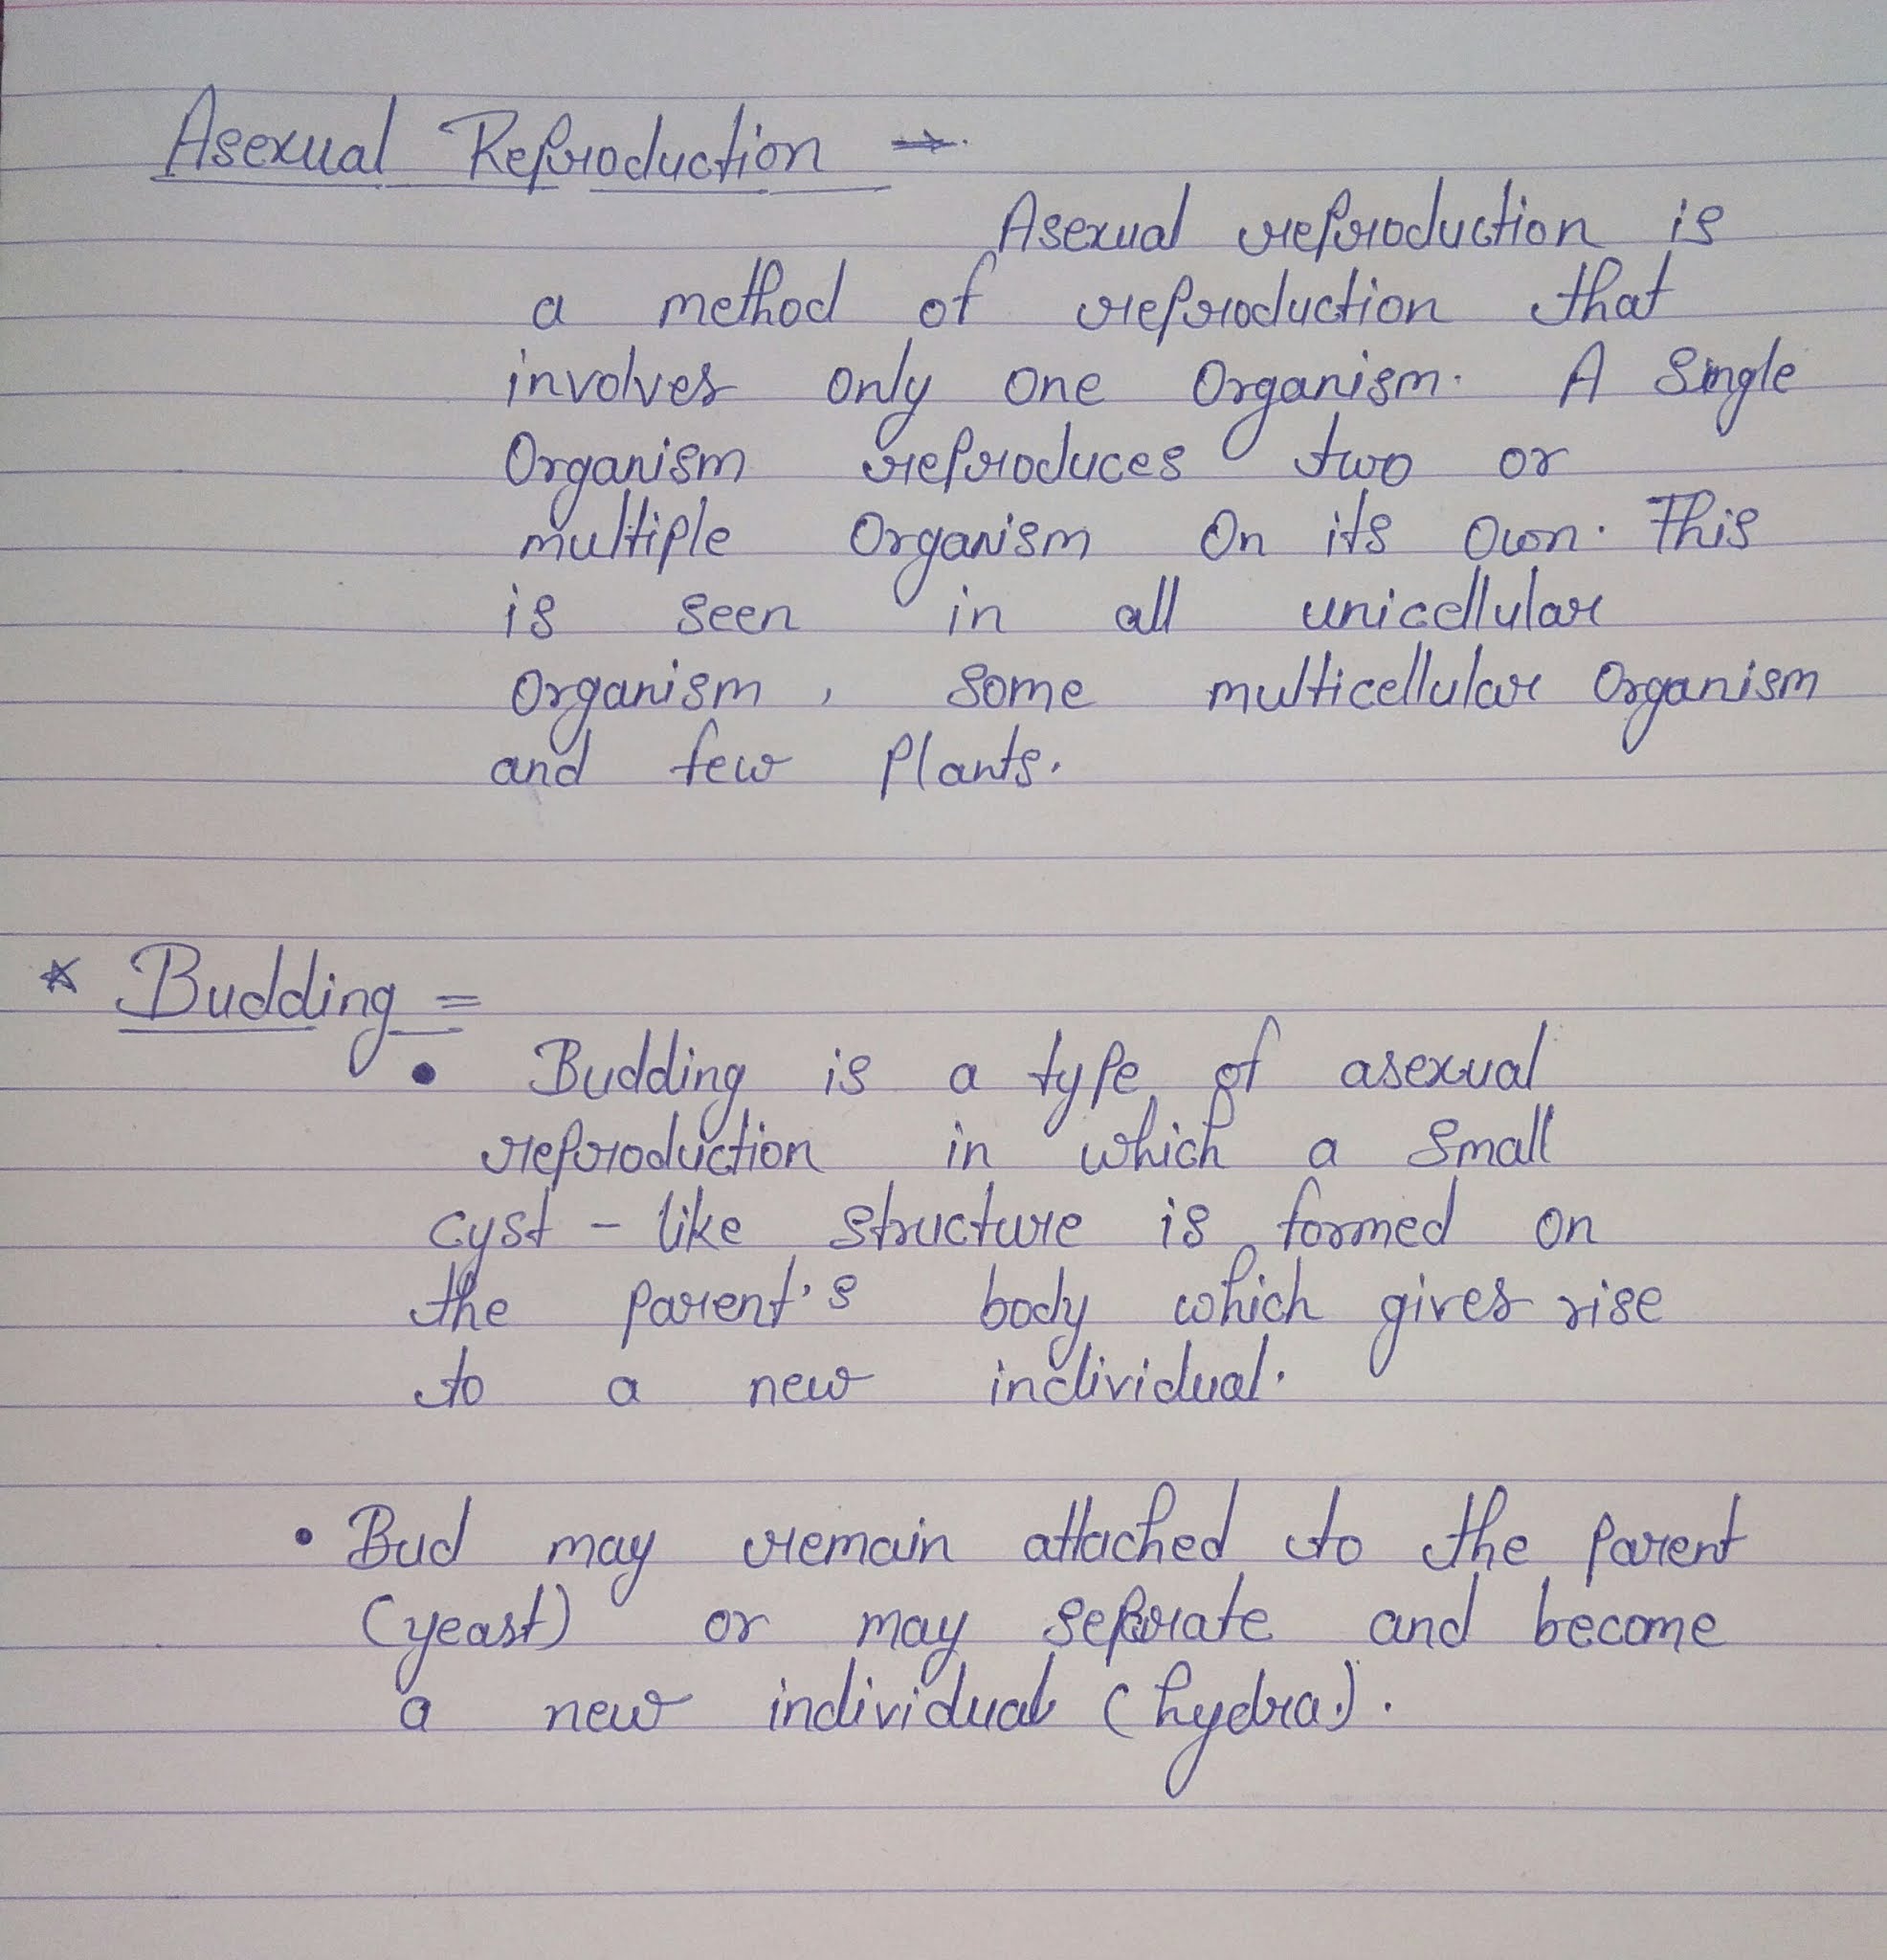 Asexual Reproduction →
Asexual reproduction is
a method of reproduction that
involves only one Organism. A Single
Organism reproduces two or
multiple Organism On its Own. This
is seen in all unicellular
Organism, Some multicellular Organism
and few Plants.
* Budding =
• Budding is a type of asexual
reproduction in which a Small
cyst - like structure is formed on
the parent's body which gives rise
to a new individual.
• Bud may remain attached to the parent
(yeast) or may seprate and become
a new individual (hydra.).